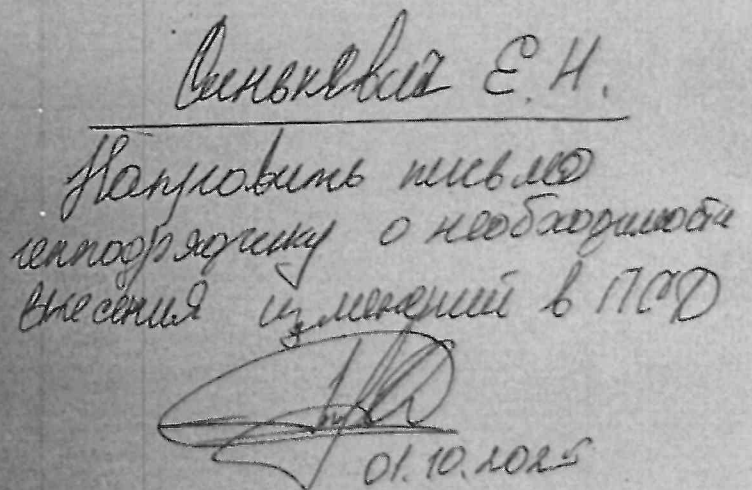 Синкевич Е.Н.
Направить письмо
генподрядчику о необходимости
внесения изменений в ПСД
01.10.2025